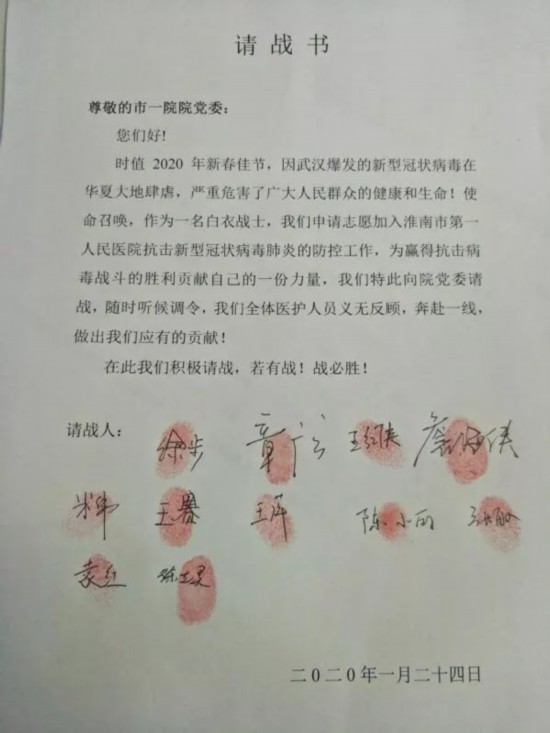 请战书
尊敬的市一院院党委：
您们好！
时值 2020 年新春佳节，因武汉爆发的新型冠状病毒在
华夏大地肆虐，严重危害了广大人民群众的健康和生命！使
命召唤，作为一名白衣战士，我们申请志愿加入淮南市第一
人民医院抗击新型冠状病毒肺炎的防控工作，为赢得抗击病
毒战斗的胜利贡献自己的一份力量，我们特此向院党委请
战，随时听候调令，我们全体医护人员义无反顾，奔赴一线，
做出我们应有的贡献！
在此我们积极请战，若有战！战必胜！
请战人： 徐步
陈小丽
袁红
二0二0年一月二十四日